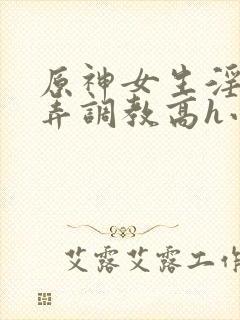 原神女生淫
弄調教高h小
艾露艾露工作